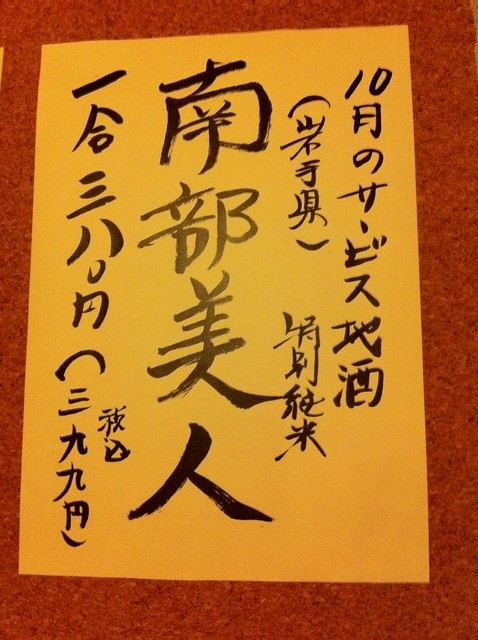 10月のサービス地酒
(岩手県)
特別純米
南部美人
一合三八〇円(三九九円)
税込